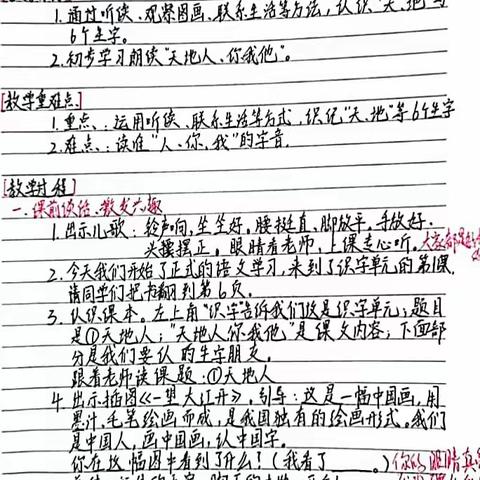 1.通过听读、观察图画、联系生活等方法，认识"天、地"等
6个生字。
2.初步学习朗读"天地人、你我他"。
[教学重难点]
1.重点：运用听读、联系生活等方式，识记"天、地"等6个生字
2.难点：读准"人、你、我"的字音。
[教学过程]
一.课前谈话、激发兴趣
1.出示儿歌：铃声响，坐坐好。腰挺直、脚放平。手放好、
头摆摆正。眼睛看老师，上课专心听。大家都
2.今天我们开始了正式的语文学习，来到了识字单元的第1课，
请同学们把书翻到第6页。
3.认识课本。左上角"识字"告诉我们这是识字单元；题目
是①天地人；"天地人你我他"是课文内容；下面部
分是我们要认的生字朋友。
跟着老师读课题：①天地人
4.出示插图《一望大江开》，引导：这是一幅中国画，用
墨汁、毛笔绘画而成，是我国独有的绘画形式。我们
是中国人，画中国画，认中国字。
你在这幅图中看到了什么？（我看了____。）你的眼睛真